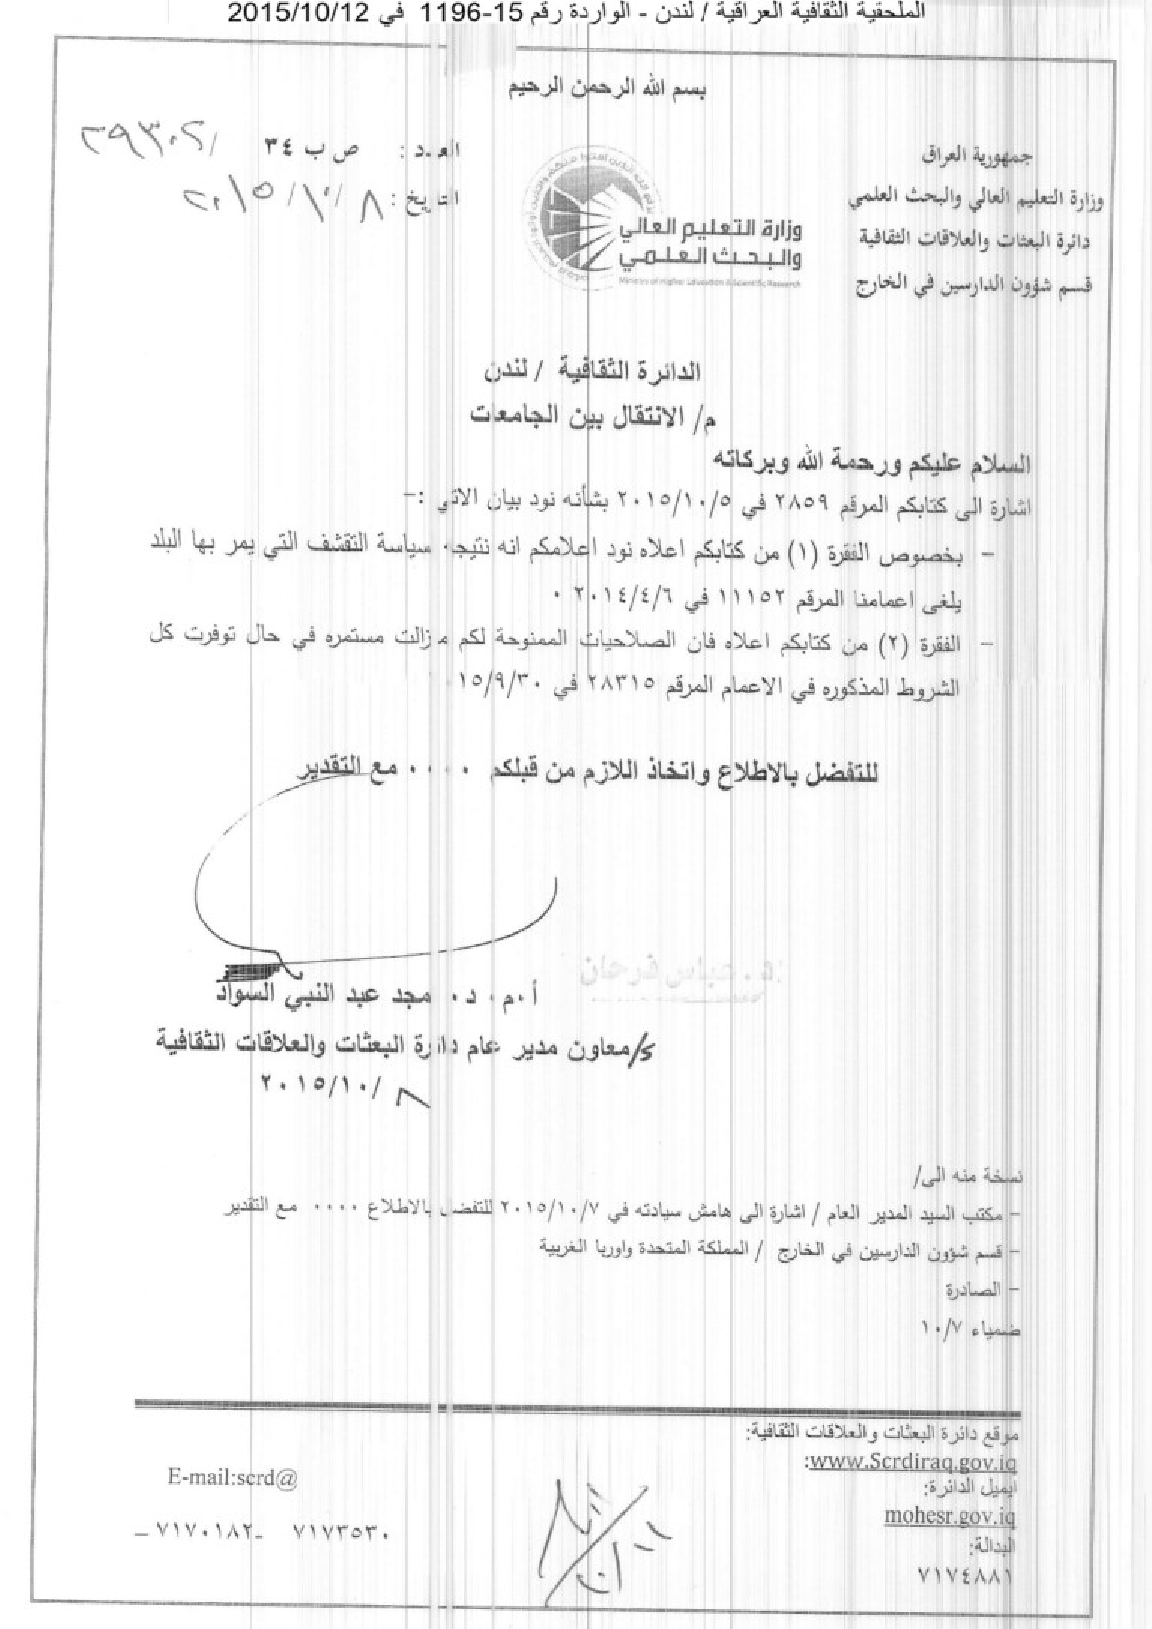 الملحقية الثقافية العراقية / لندن - الواردة رقم 15-1196 في 2015/10/12
بسم الله الرحمن الرحيم
جمهورية العراق
وزارة التعليم العالي والبحث العلمي
دائرة البعثات والعلاقات الثقافية
قسم شؤون الدارسين في الخارج
وزارة التعليم العالي
والبحث العلمي
Ministry of Higher Education & Scientific Research
العدد : ص ب ٣٤ / ٢٩٣٠٢
التاريخ : ٨ / ١٠ / ٢٠١٥
الدائرة الثقافية / لندن
م/ الانتقال بين الجامعات
السلام عليكم ورحمة الله وبركاته
اشارة الى كتابكم المرقم ٢٨٥٩ في ٢٠١٥/١٠/٥ بشأنه نود بيان الاتي :-
- بخصوص الفقرة (١) من كتابكم اعلاه نود اعلامكم انه نتيجة سياسة التقشف التي يمر بها البلد
يلغى اعمامنا المرقم ١١١٥٢ في ٢٠١٤/٤/٦ ٠
- الفقرة (٢) من كتابكم اعلاه فان الصلاحيات الممنوحة لكم مازالت مستمره في حال توفرت كل
الشروط المذكوره في الاعمام المرقم ٢٨٣١٥ في ١٥/٩/٣٠
للتفضل بالاطلاع واتخاذ اللازم من قبلكم ٠٠٠٠ مع التقدير
د. عباس فرحان
أ.م. د. مجد عبد النبي السواد
ع/معاون مدير عام دائرة البعثات والعلاقات الثقافية
٢٠١٥/١٠/ ٨
نسخة منه الى/
- مكتب السيد المدير العام / اشارة الى هامش سيادته في ٢٠١٥/١٠/٧ للتفضل بالاطلاع ٠٠٠٠ مع التقدير
- قسم شؤون الدارسين في الخارج / المملكة المتحدة واوربا الغربية
- الصادرة
ضمياء ١٠/٧
موقع دائرة البعثات والعلاقات الثقافية:
www.Scrdiraq.gov.iq:
ايميل الدائرة:
E-mail:scrd@
mohesr.gov.iq
البدالة:
٧١٧٤٨٨١
٧١٧٣٥٣٠ -٧١٧٠١٨٢ -